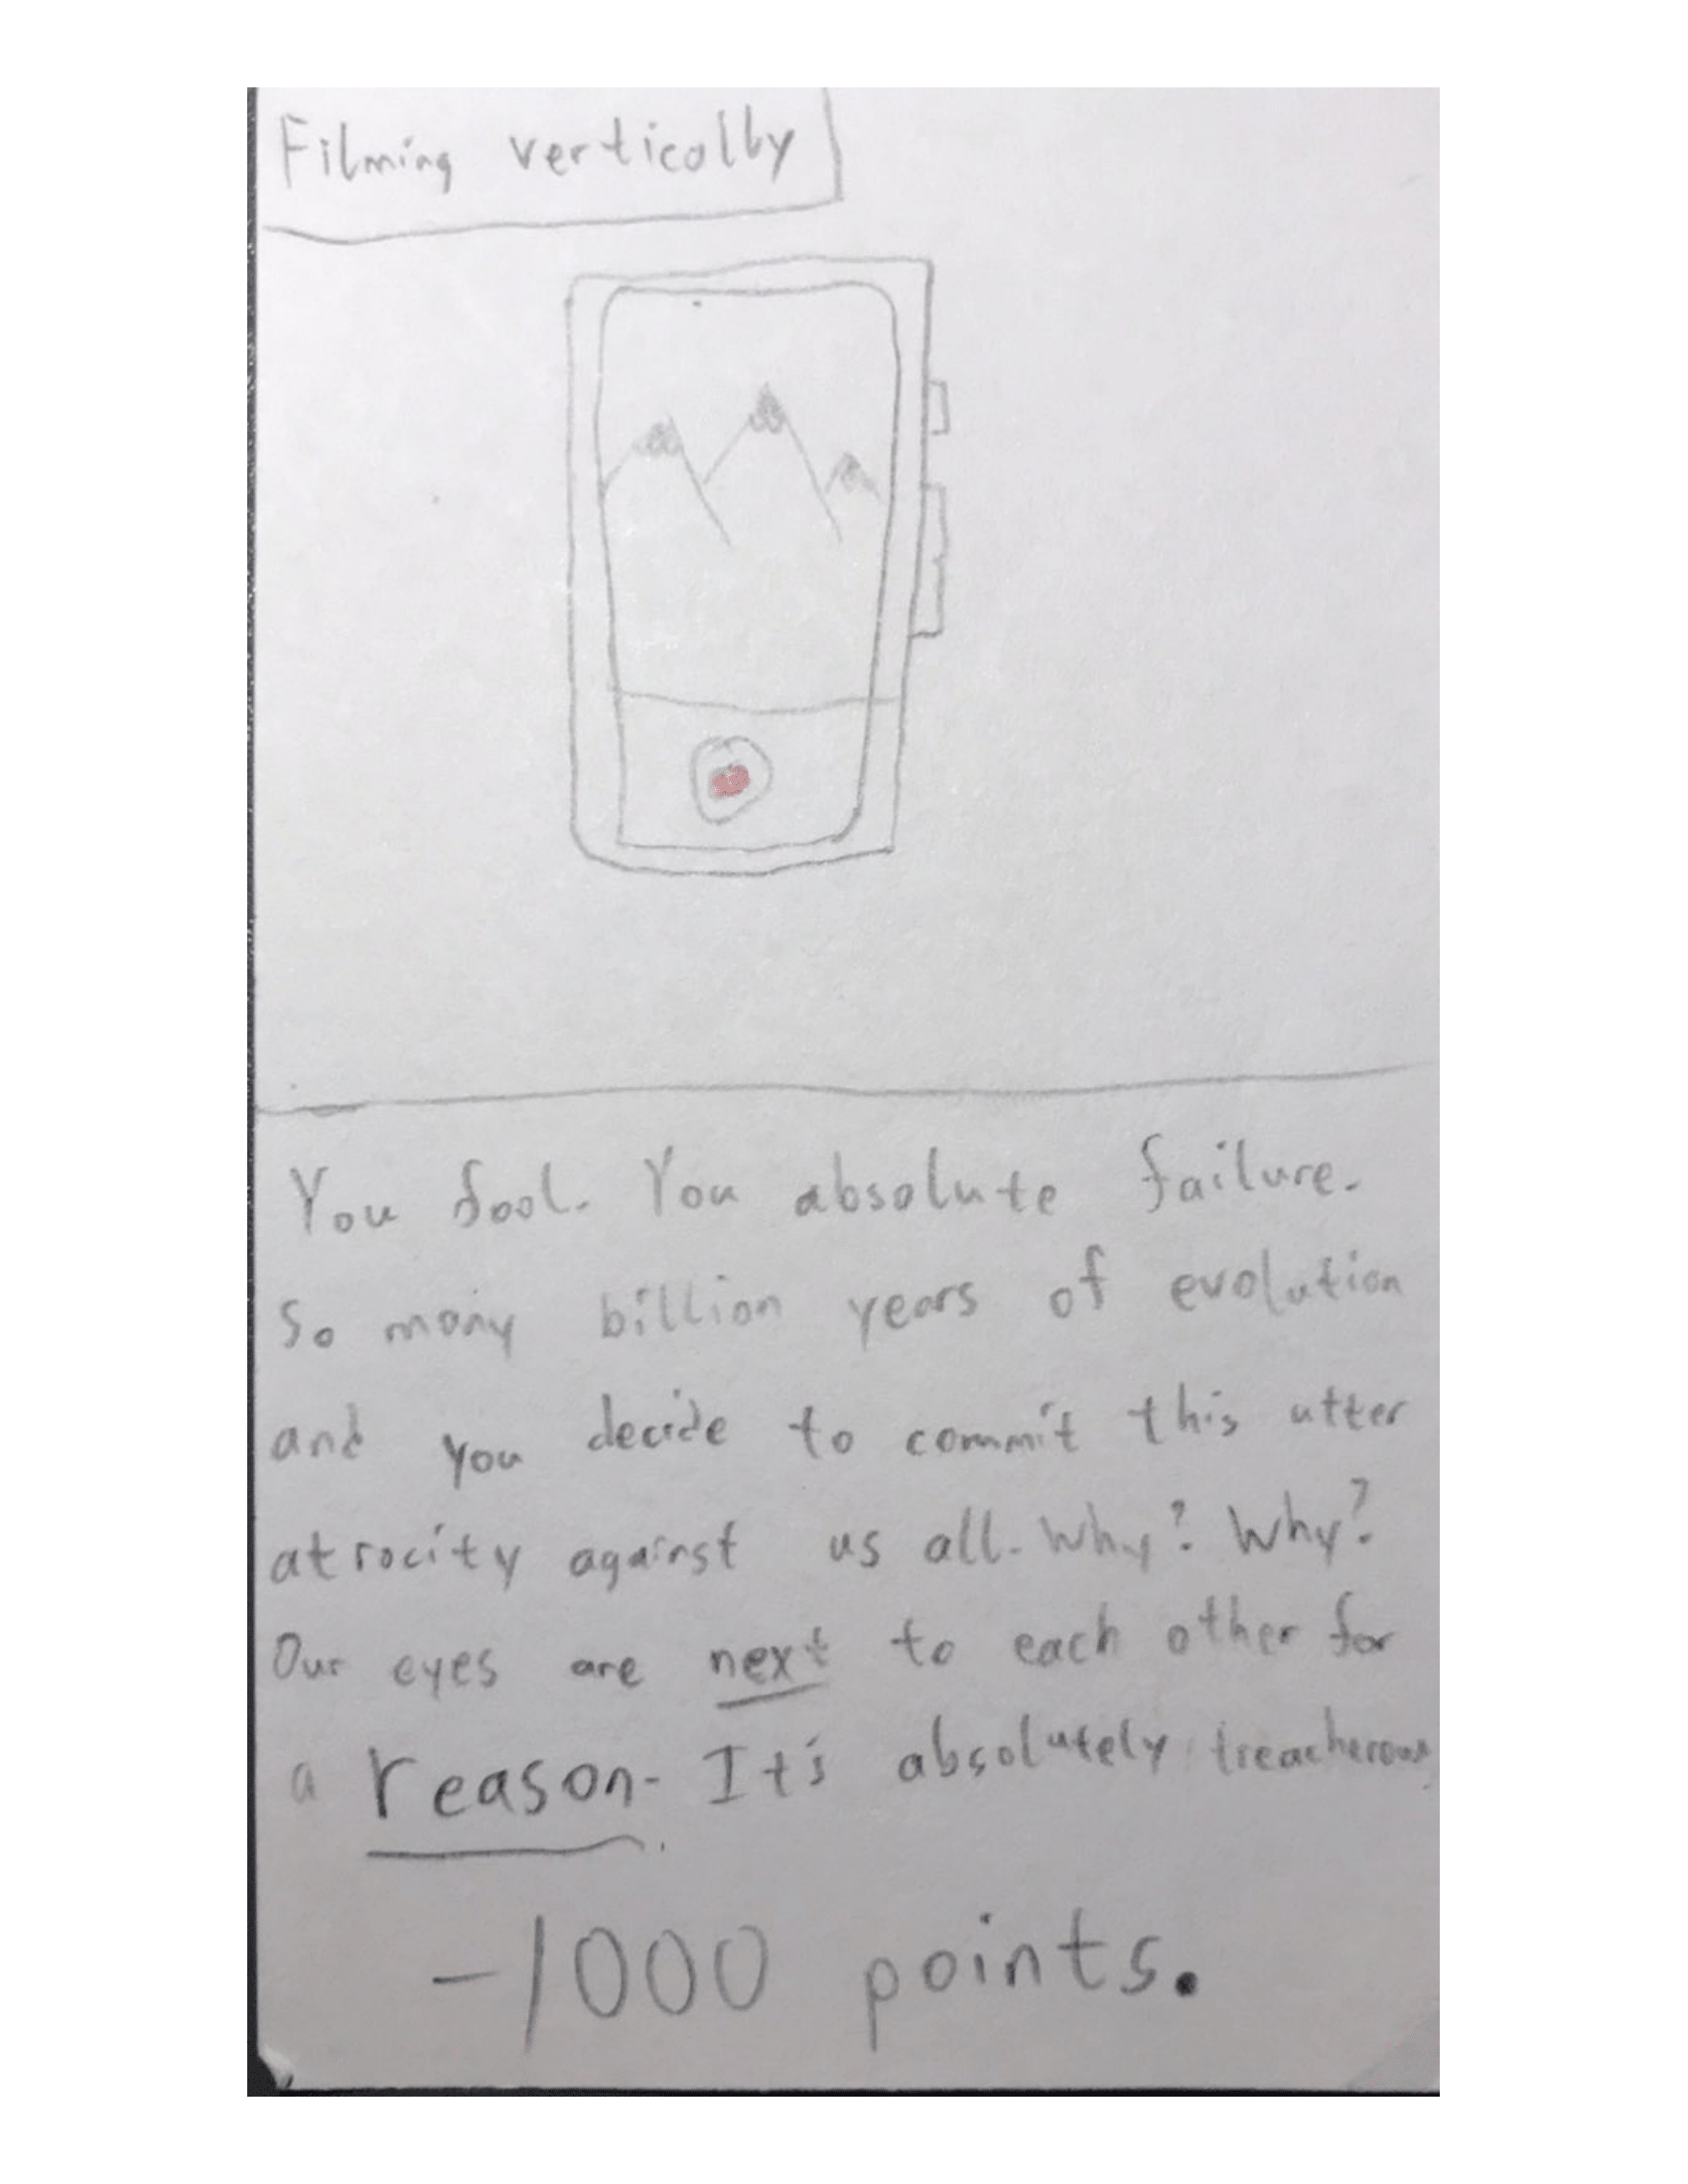 Filming vertically
You fool. You absolute failure.
So many billion years of evolution
and you decide to commit this utter
atrocity against us all. Why? Why?
Our eyes are next to each other for
a reason. It's absolutely treacherous.
-1000 points.